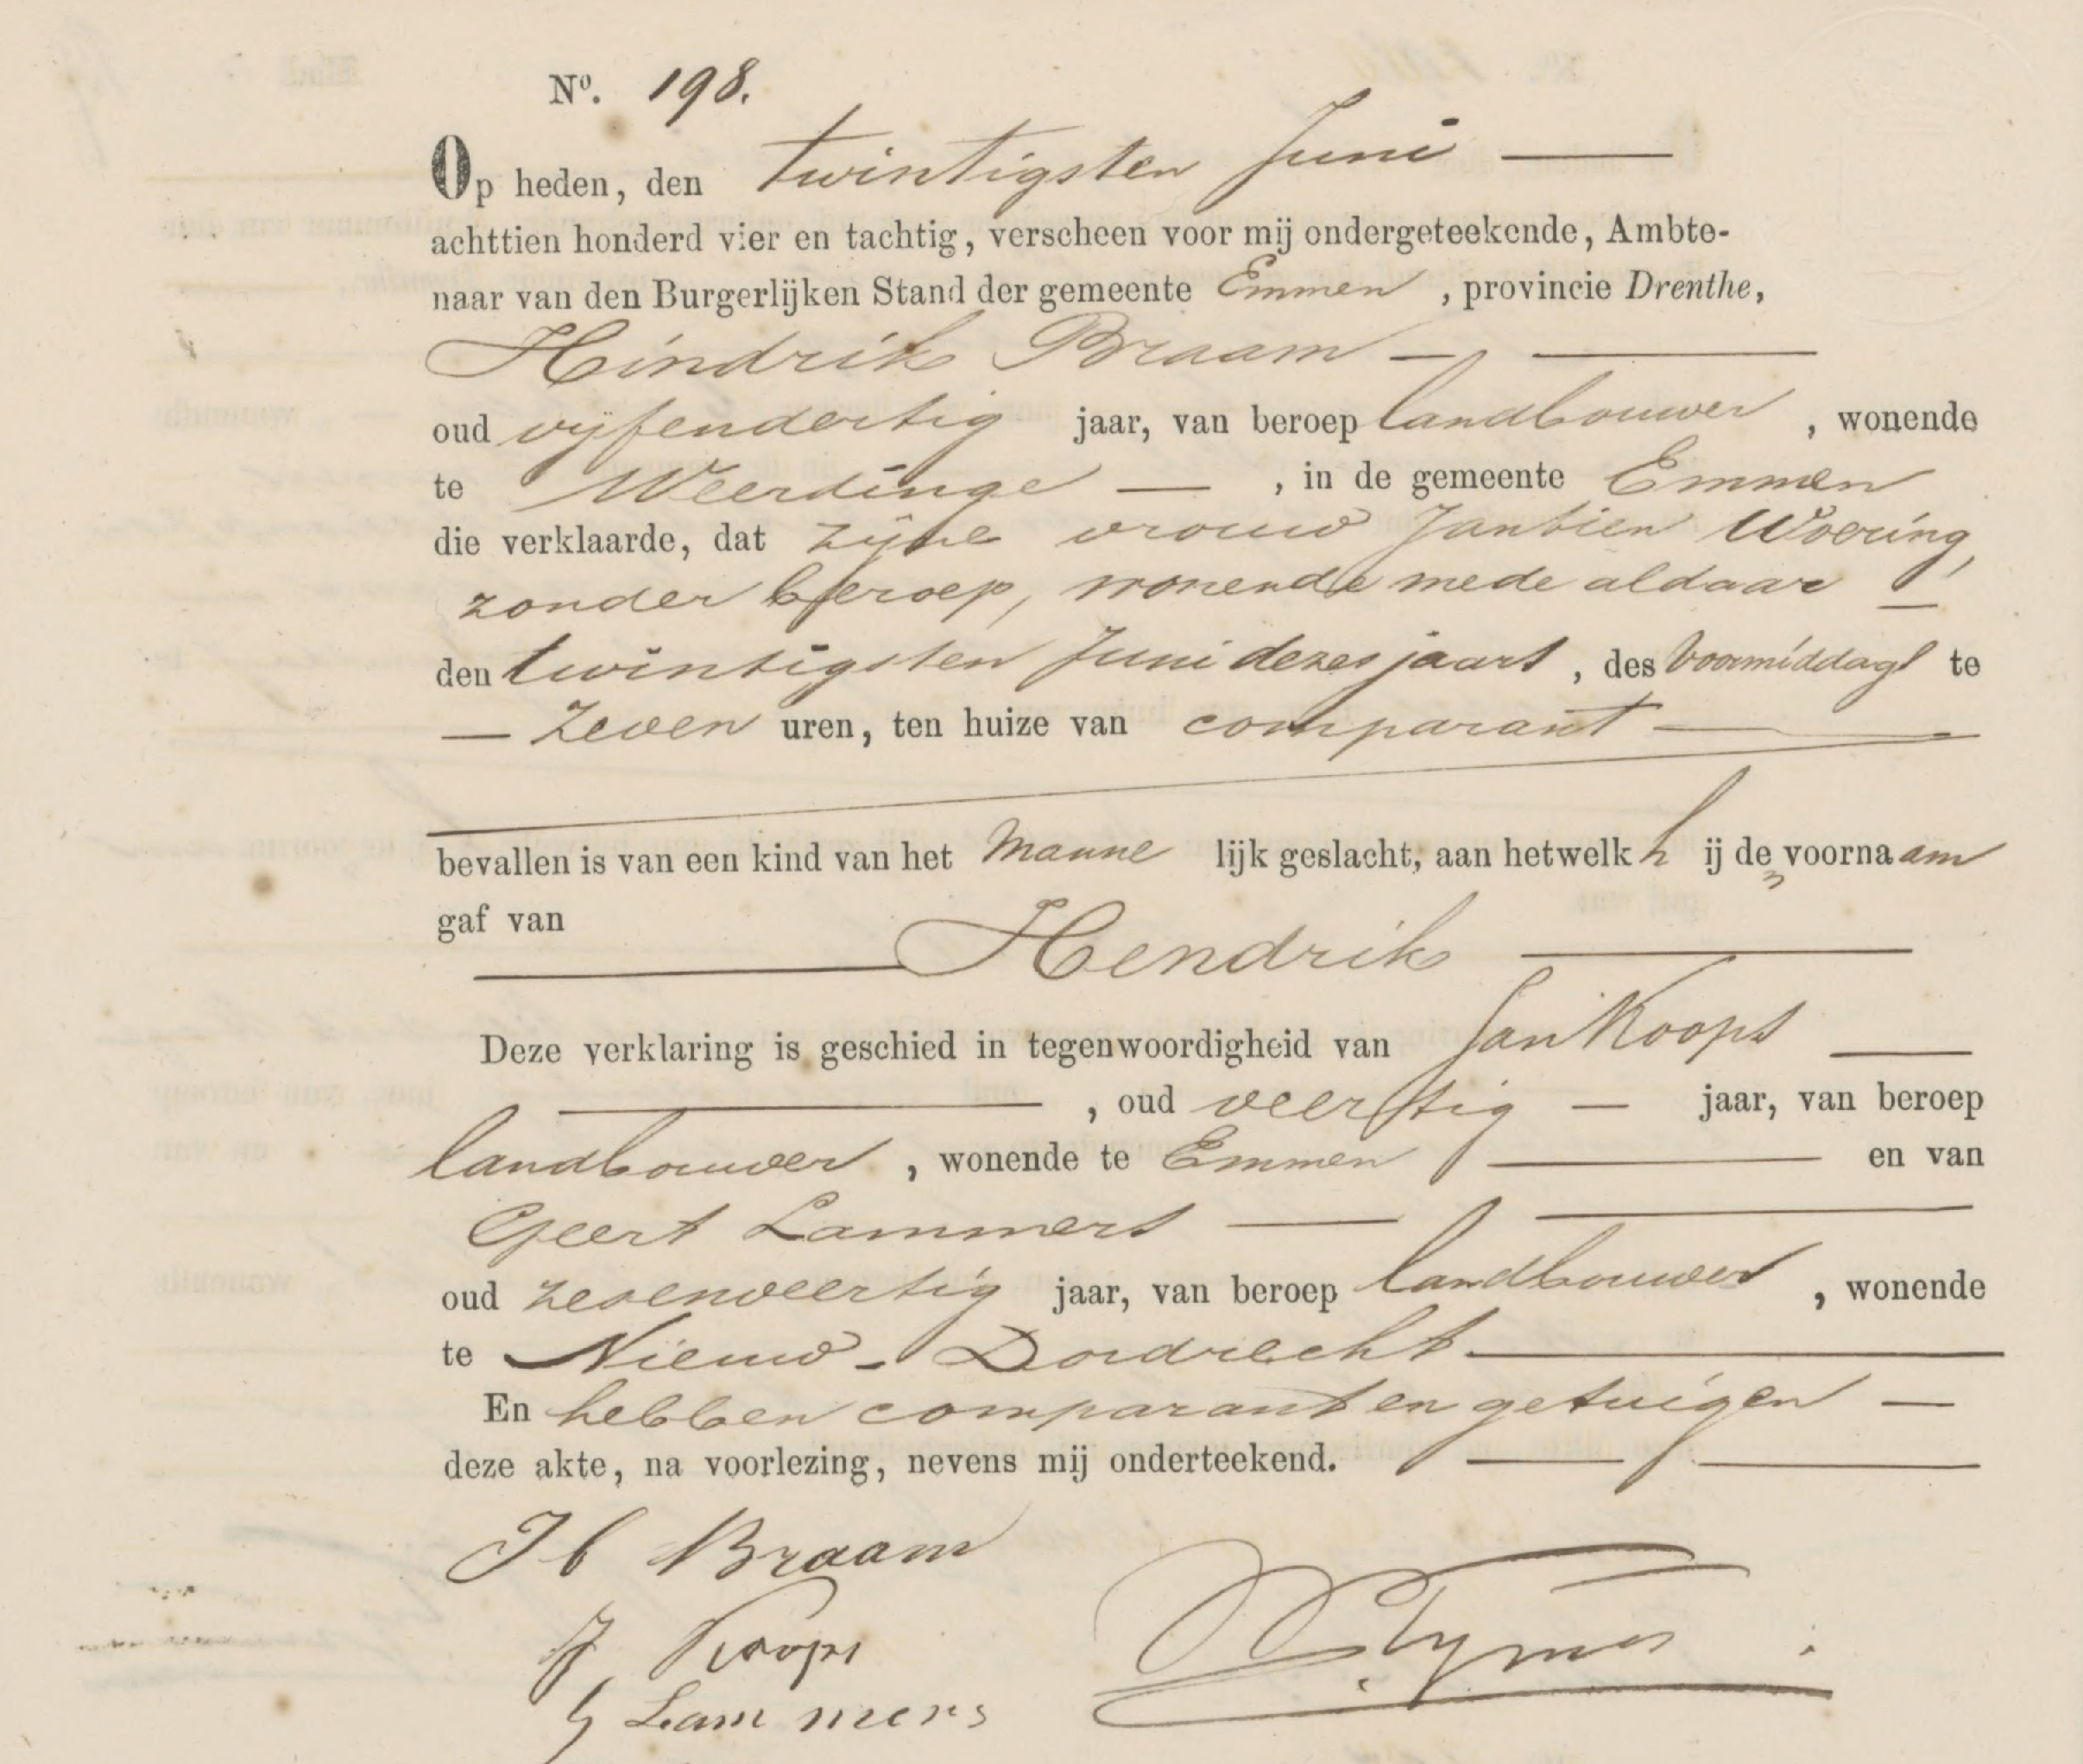 Nº. 198.
Op heden, den twintigsten Juni
achttien honderd vier en tachtig, verscheen voor mij ondergeteekende, Ambte-
naar van den Burgerlijken Stand der gemeente Emmen, provincie Drenthe,
Hindrik Braam
oud vijfendertig jaar, van beroep landbouwer, wonende
te Weerdinge, in de gemeente Emmen
die verklaarde, dat zijne vrouw Jantien Woering,
zonder beroep, wonende mede aldaar
den twintigsten Juni dezes jaars, des Voormiddags te
zeven uren, ten huize van comparant
bevallen is van een kind van het Manne lijk geslacht, aan hetwelk h ij den voornaam
gaf van
Hendrik
Deze verklaring is geschied in tegenwoordigheid van Jan Koops
, oud veertig jaar, van beroep
landbouwer, wonende te Emmen en van
Geert Lammers
oud zevenveertig jaar, van beroep landbouwer, wonende
te Nieuw-Dordrecht
En hebben comparant en getuigen
deze akte, na voorlezing, nevens mij onderteekend.
H Braam
J Koops
G Lammers